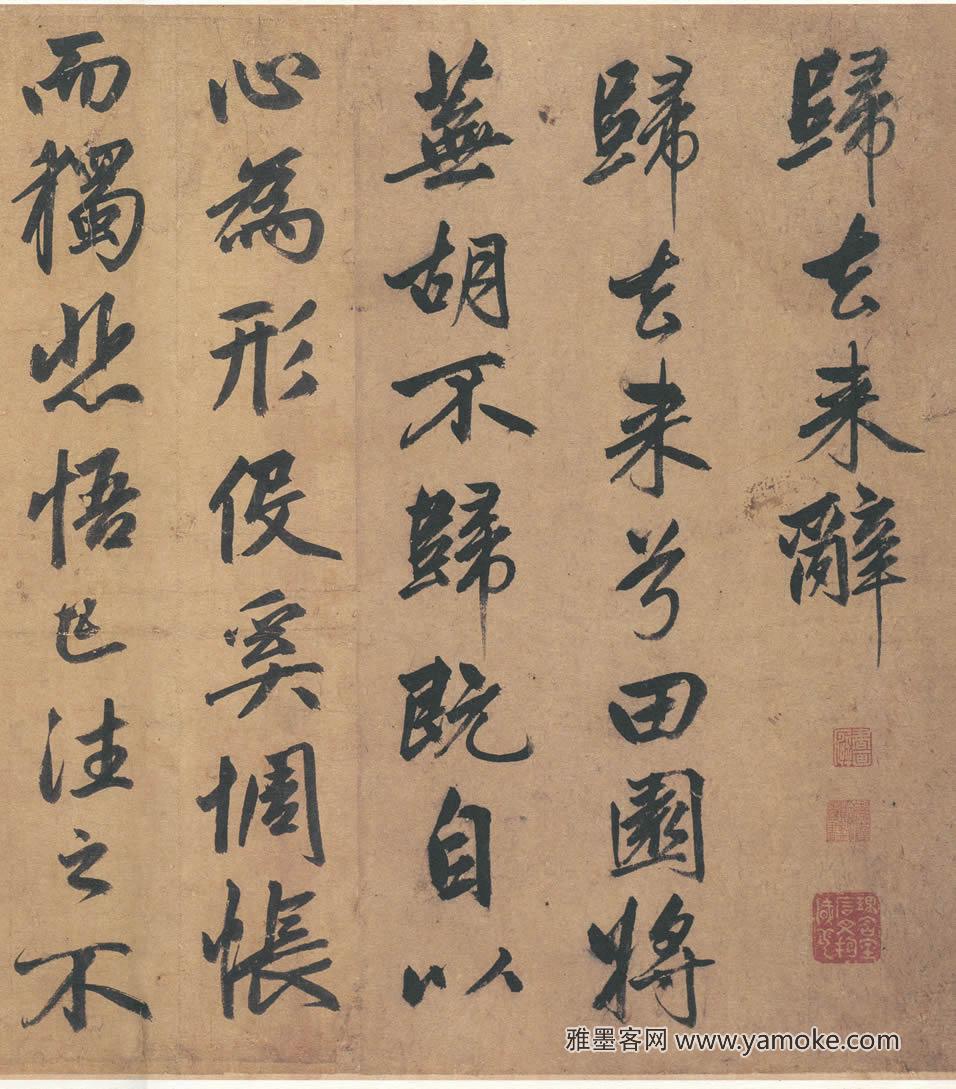 歸去来辭
歸去来兮田園將
蕪胡不歸既自以
心為形役奚惆悵
而獨悲悟已往之不
雅墨客网 www.yamoke.com